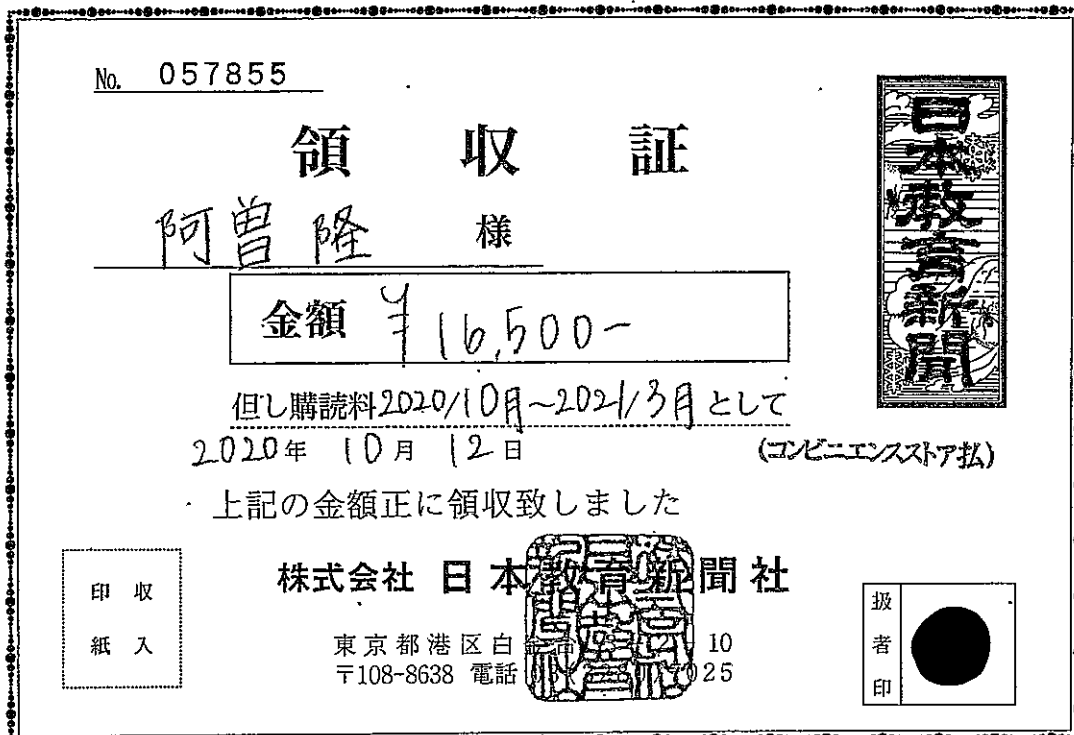 No. 057855
領収証
阿曽 隆 様
金額 ¥16,500-
但し購読料2020/10月~2021/3月として
2020年 10月 12日
(コンビニエンスストア払)
上記の金額正に領収致しました
株式会社 日本教育新聞社
東京都港区白金台 10
〒108-8638 電話 025
収入
印紙
扱者印
日本教育新聞